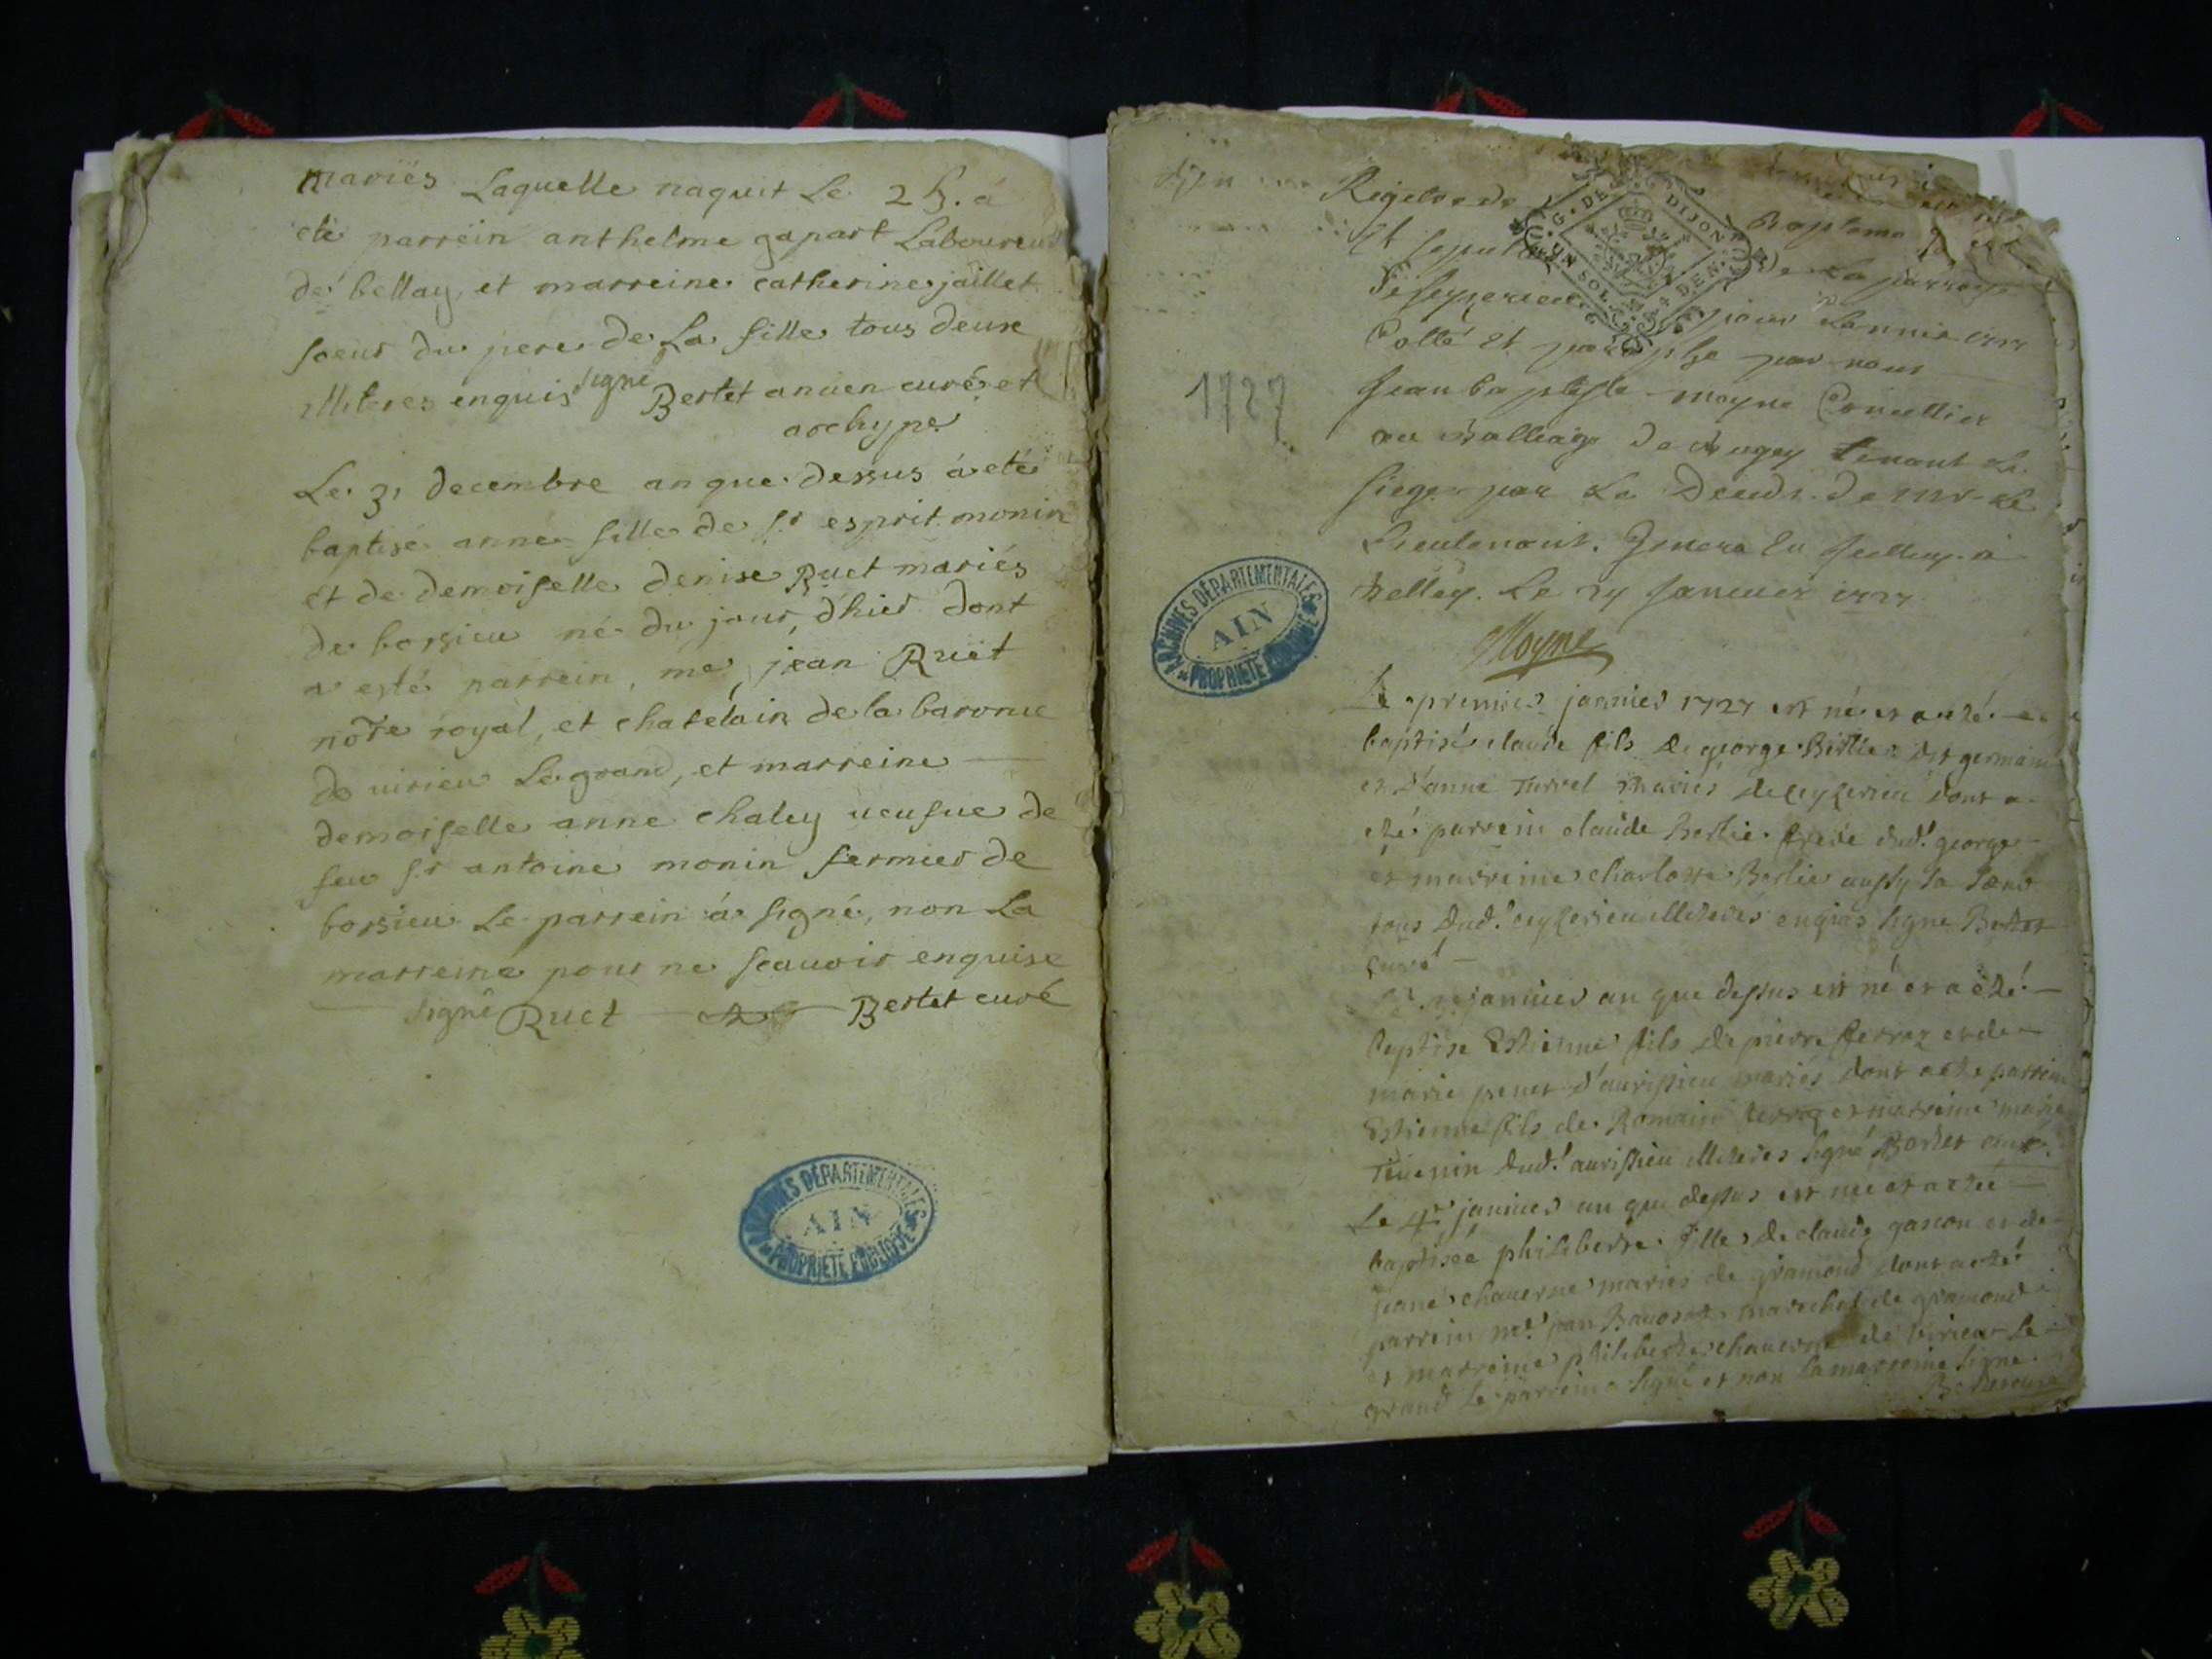 mariés Laquelle naquit Le 25. á
eté parrein anthelme gapart Laboureur
de bellay, et marreine catherine jaillet
soeur du pere de La fille tous deux
illiteres enquis signé Bertet ancien curé et
archypre
Le 31 decembre an que dessus á eté
baptisé anne fille de sr esprit monin
et de demoiselle denise Ruet mariés
de borsieu né du jour d'hier dont
a esté parrein, me jean Ruët
nore royal, et chatelain de la baronie
de uirieu Legrand, et marreine
demoiselle anne chaley ueufue de
feu sr antoine monin fermier de
borsieu Le parrein á signé, non La
marreine pour ne scauoir enquise
signé Ruet Bertet curé
ARCHIVES DÉPARTEMENTALES
AIN
PROPRIÉTÉ PUBLIQUE
G. DE DIJON
UN SOL DEN.
Bapteme
Et sepul de La parroisse
pour Lannee 1727
Cotté et par nous
Jean baptiste moyne Conseillier
au Balliage de Bugey tenant Le
siege par Le de Mr Le
Lieutenant
Belley. Le 24 Januier 1727
Moyne
1727
ARCHIVES DÉPARTEMENTALES
AIN
PROPRIÉTÉ PUBLIQUE
Le premier januier 1727 est né et a eté
baptisé claude fils de george Bertier dit germain
et d'anne Turrel mariés de ceyzerieu dont a
eté parrein claude Bertie frere dud. george
et marreine charlotte Bertie aussy sa soeur
tous dud. ceyzerieu illiterés enquis signe Bertet
curé
januier an que dessus est né et a eté
baptise Estienne fils de pierre ferraz et de
marie penet d'aurissieu mariés dont a ete parrein
Estienne fils de Romain ferraz et marreine marie
Teuenin dud. aurissieu illiteres signé Bertet curé
Le 4e januier an que dessus est née et a eté
baptisée philiberte fille de claude gascon et de
jeane chauerne mariés de gramond dont a eté
parrein me jean marechal de gramond
et marreine philiberte chauerne de virieu le
grand le parrein a signé et non la marreine signe
Bertet curé